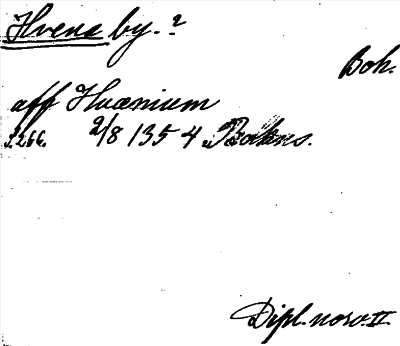 Hvena by. ?
Boh.
aff Huænium
S. 266. 2/8 1354 Bohus.
Dipl. norv. II.